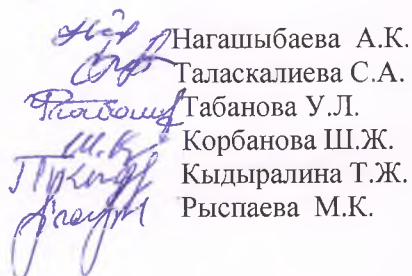 Нагашыбаева А.К.
Таласкалиева С.А.
Табанова У.Л.
Корбанова Ш.Ж.
Кыдыралина Т.Ж.
Рыспаева М.К.